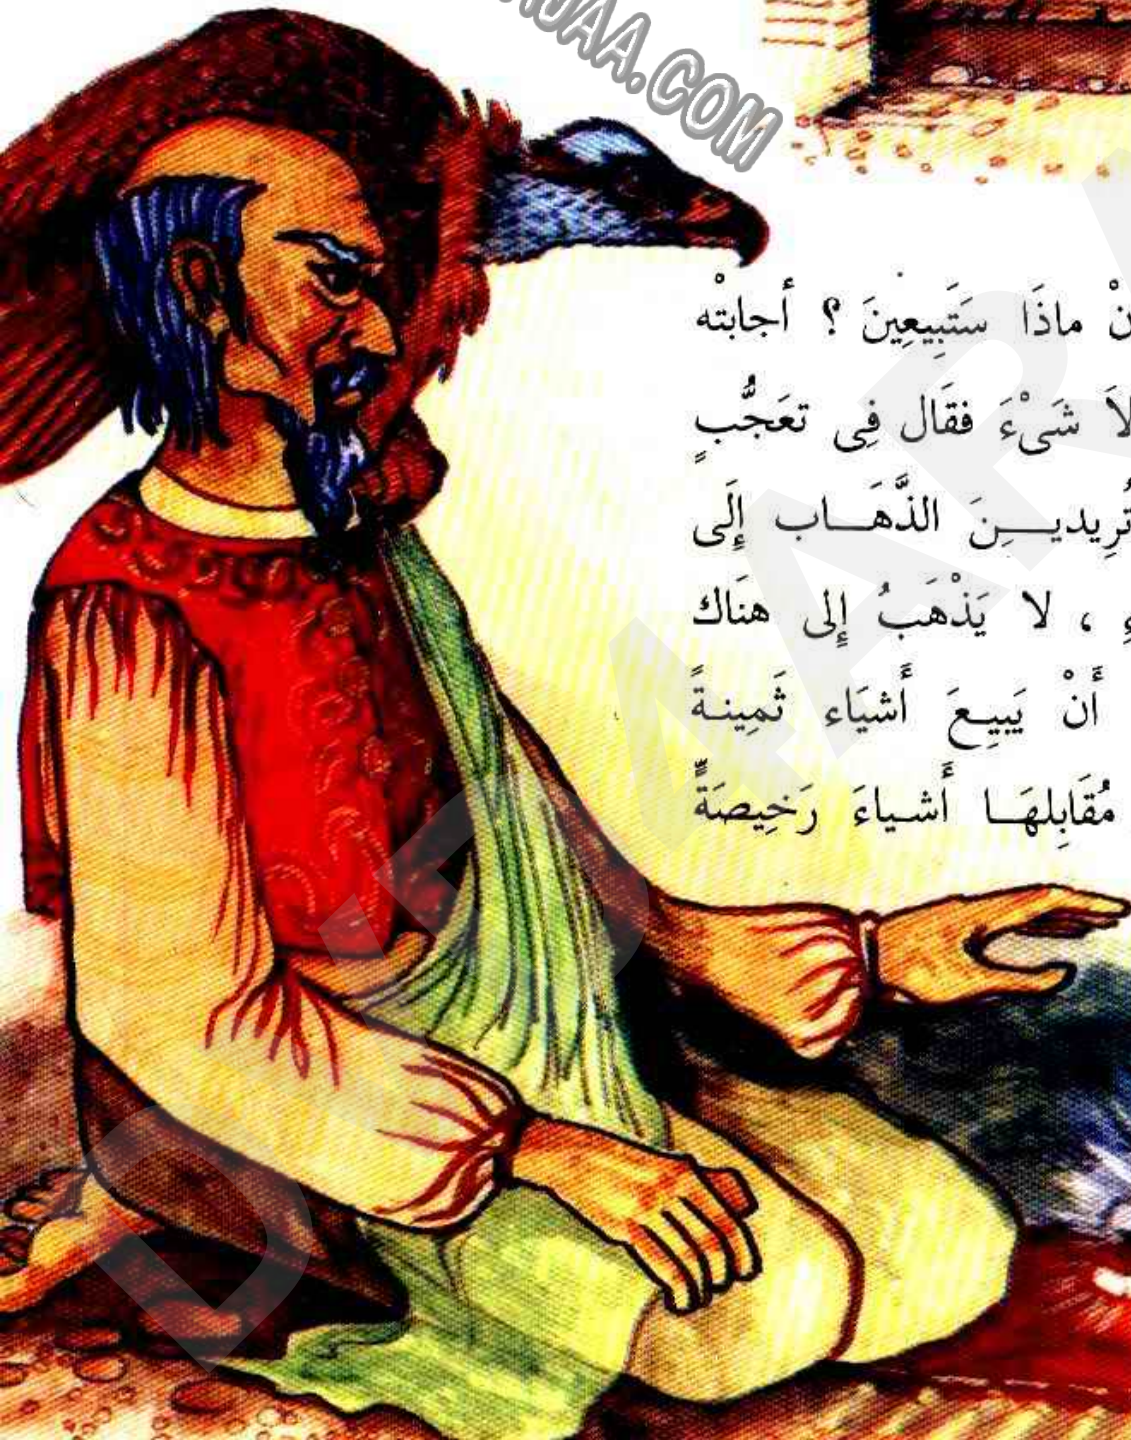 JAA.COM
ماذَا سَتَبِيعِينَ ؟ أجابتْه
شَىْءَ فقَال فِى تعَجُّبٍ
تُرِيديــنَ الذَّهَــاب إِلَى
، لا يَذْهَبُ إِلى هنَاك
أَنْ يَبِيـعَ أَشيَاء ثَمِينـةً
مُقَابِلهَــا أَشـياءَ رَخِيصَةً